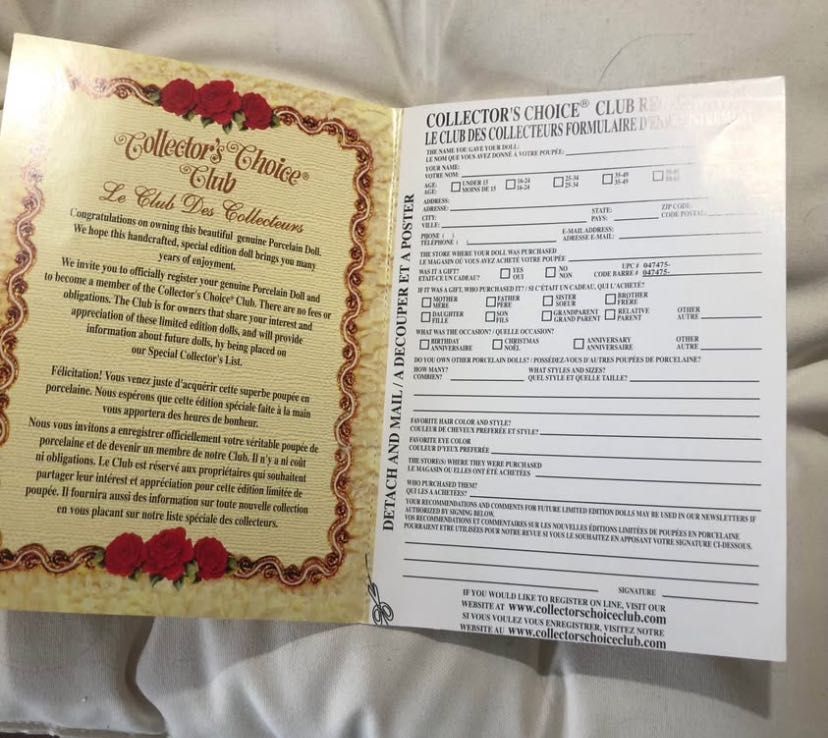 Collector's Choice®
Club
Le Club Des Collecteurs
Congratulations on owning this beautiful genuine Porcelain Doll.
We hope this handcrafted, special edition doll brings you many
years of enjoyment.
We invite you to officially register your genuine Porcelain Doll and
to become a member of the Collector's Choice® Club. There are no fees or
obligations. The Club is for owners that share your interest and
appreciation of these limited edition dolls, and will provide
information about future dolls, by being placed on
our Special Collector's List.
Félicitation! Vous venez juste d'acquérir cette superbe poupée en
porcelaine. Nous espérons que cette édition spéciale faite à la main
vous apportera des heures de bonheur.
Nous vous invitons a enregistrer officiellement votre véritable poupée de
porcelaine et de devenir un membre de notre Club. Il n'y a ni coût
ni obligations. Le Club est réservé aux propriétaires qui souhaitent
partager leur intérest et appréciation pour cette édition limitée de
poupée. Il fournira aussi des information sur toute nouvelle collection
en vous placant sur notre liste spéciale des collecteurs.
DETACH AND MAIL / A DECOUPER ET A POSTER
COLLECTOR'S CHOICE® CLUB
LE CLUB DES COLLECTEURS FORMULAIRE
THE NAME YOU GAVE YOUR DOLL:
LE NOM QUE VOUS AVEZ DONNÉ À VOTRE POUPÉE:
YOUR NAME:
VOTRE NOM:
AGE: UNDER 15 16-24 25-34 35-49
AGE: MOINS DE 15 16-24 25-34 35-49
ADDRESS:
ADRESSE:
CITY: STATE: ZIP CODE:
VILLE: PAYS: CODE POSTAL:
PHONE ( ) E-MAIL ADDRESS:
TÉLÉPHONE ( ) ADRESSE E-MAIL:
THE STORE WHERE YOUR DOLL WAS PURCHASED
LE MAGASIN OÙ VOUS AVEZ ACHETÉ VOTRE POUPÉE
WAS IT A GIFT? YES NO UPC # 047475-
ÉTAIT-CE UN CADEAU? OUI NON CODE BARRE # 047475-
IF IT WAS A GIFT, WHO PURCHASED IT? / SI C'ÉTAIT UN CADEAU, QUI L'ACHETÉ?
MOTHER FATHER SISTER BROTHER
MÈRE PÈRE SOEUR FRÈRE
DAUGHTER SON GRANDPARENT RELATIVE OTHER
FILLE FILS GRAND PARENT PARENT AUTRE
WHAT WAS THE OCCASION? / QUELLE OCCASION?
BIRTHDAY CHRISTMAS ANNIVERSARY OTHER
ANNIVERSAIRE NOËL ANNIVERSAIRE AUTRE
DO YOU OWN OTHER PORCELAIN DOLLS? / POSSÉDEZ-VOUS D'AUTRES POUPÉES DE PORCELAINE?
HOW MANY? WHAT STYLES AND SIZES?
COMBIEN? QUEL STYLE ET QUELLE TAILLE?
FAVORITE HAIR COLOR AND STYLE?
COULEUR DE CHEVEUX PREFERÉE ET STYLE?
FAVORITE EYE COLOR
COULEUR D'YEUX PREFERÉE
THE STORE(S) WHERE THEY WERE PURCHASED
LE MAGASIN OU ELLES ONT ÉTÉ ACHETÉES
WHO PURCHASED THEM?
QUI LES A ACHETÉES?
YOUR RECOMMENDATIONS AND COMMENTS FOR FUTURE LIMITED EDITION DOLLS MAY BE USED IN OUR NEWSLETTERS IF
AUTHORIZED BY SIGNING BELOW.
VOS RECOMMENDATIONS ET COMMENTAIRES SUR LES NOUVELLES ÉDITIONS LIMITÉES DE POUPÉES EN PORCELAINE
POURRAIENT ETRE UTILISÉES POUR NOTRE REVUE SI VOUS LE SOUHAITEZ EN APPOSANT VOTRE SIGNATURE CI-DESSOUS.
SIGNATURE
IF YOU WOULD LIKE TO REGISTER ON LINE, VISIT OUR
WEBSITE AT www.collectorschoiceclub.com
SI VOUS VOULEZ VOUS ENREGISTRER, VISITEZ NOTRE
WEBSITE AU www.collectorschoiceclub.com